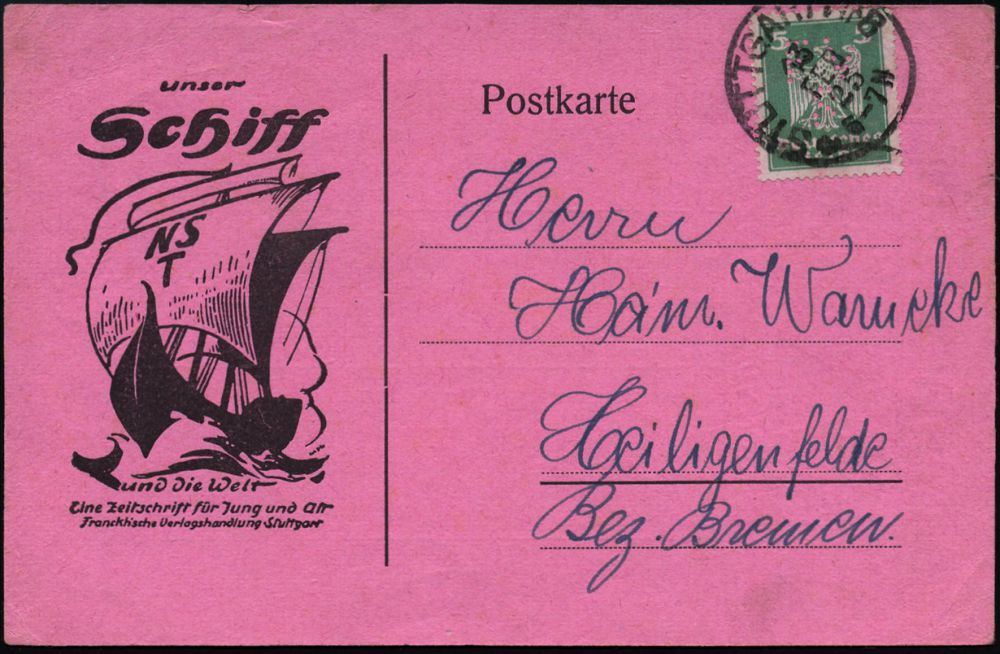 unser
Schiff
NS
T
und die Welt
Eine Zeitschrift für Jung und Alt
Franckh'sche Verlagshandlung Stuttgart
Postkarte
STUTTGART
5 5
Herrn
Hein. Warnecke
Heiligenfelde
Bez. Bremen.